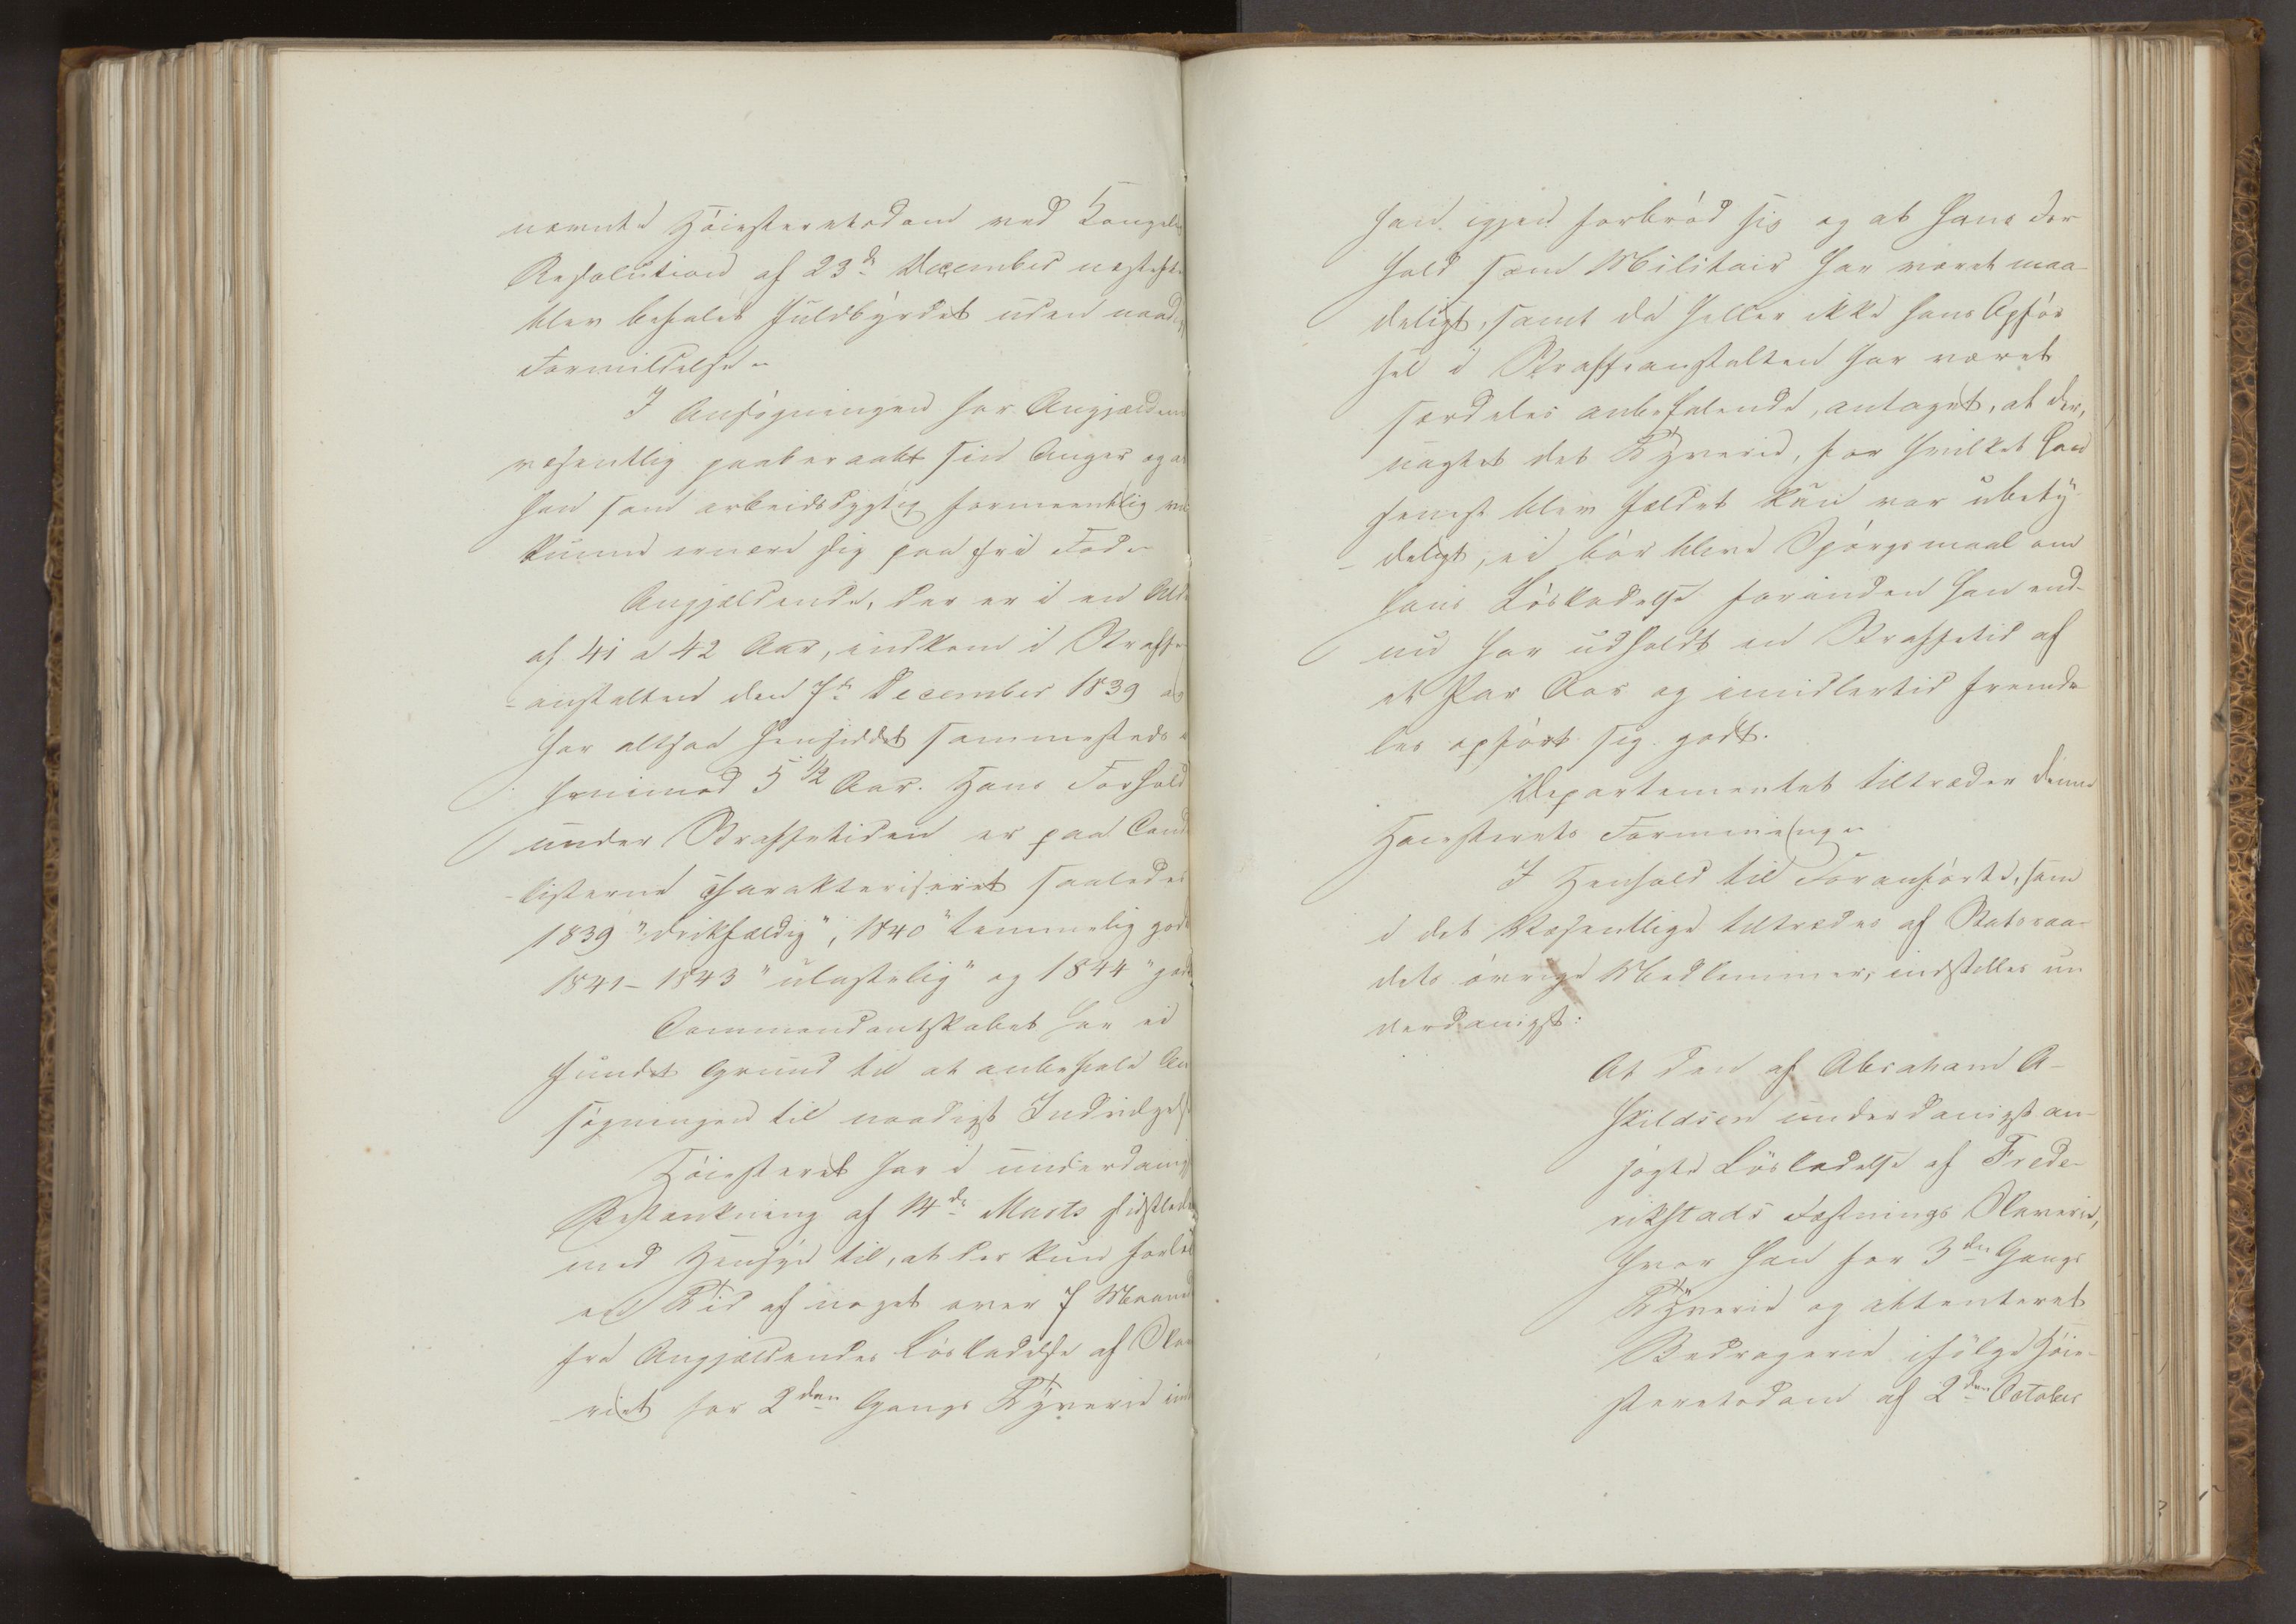 nævnte Høiesteretsdom ved Kongelig
Resolution af 23de December næstefter
blev befalet fuldbyrdet uden naadigst
Formildelse.
I Ansøgningen har Angjældende
væsentlig paaberaabt sin Anger og at
han som arbeidsdygtig formeentlig vil
kunne ernære sig paa fri Fod.
Angjældende, der er i en Alder
af 41 a 42 Aar, indkom i Straffe-
anstalten den 7de December 1839 og
har altsaa hensiddet sammesteds i
henimod 5 1/2 Aar. Hans Forhold
under Straffetiden er paa Conduite
listerne charakteriseret saaledes
1839 "drikfældig", 1840 "temmelig godt"
1841-1843 "ulastelig" og 1844 "godt"
Commandantskabet har ei
fundet Grund til at anbefale An
søgningen til naadigst Indvilgelse
Høiesteret har i underdanigst
Betænkning af 14de Marts sidstleden
med Hensyn til, at der kun forløb
en Tid af noget over 7 Maaneder
fra Angjældendes Løsladelse af Slave
riet for 2den Gangs Tyverie indtil
han igjen forbrød sig og at hans For
hold som Militair har været maa-
deligt, samt da heller ikke hans Opfør
sel i Straffeanstalten har været
særdeles anbefalende, antaget, at der,
uagtet det Tyverie, for hvilket han
senest blev fældet kun var ubety-
deligt, ei bør blive Spørgsmaal om
hans Løsladelse forinden han end-
nu har udholdt en Straffetid af
et Par Aar og imidlertid fremde
les opført sig godt.
Departementet tiltræder denne
Høiesterets Formening.
I Henhold til Foranførte, som
i det Væsentlige tiltrædes af Statsraa-
dets øvrige Medlemmer, indstilles un
derdanigst:
At den af Abraham A-
skildsen underdanigst an-
søgte Løsladelse af Frede-
rikstads Fæstnings Slaverie,
hvor han for 3die Gangs
Tyverie og attenteret
Bedragerie ifølge Høie-
steretsdom af 2den October